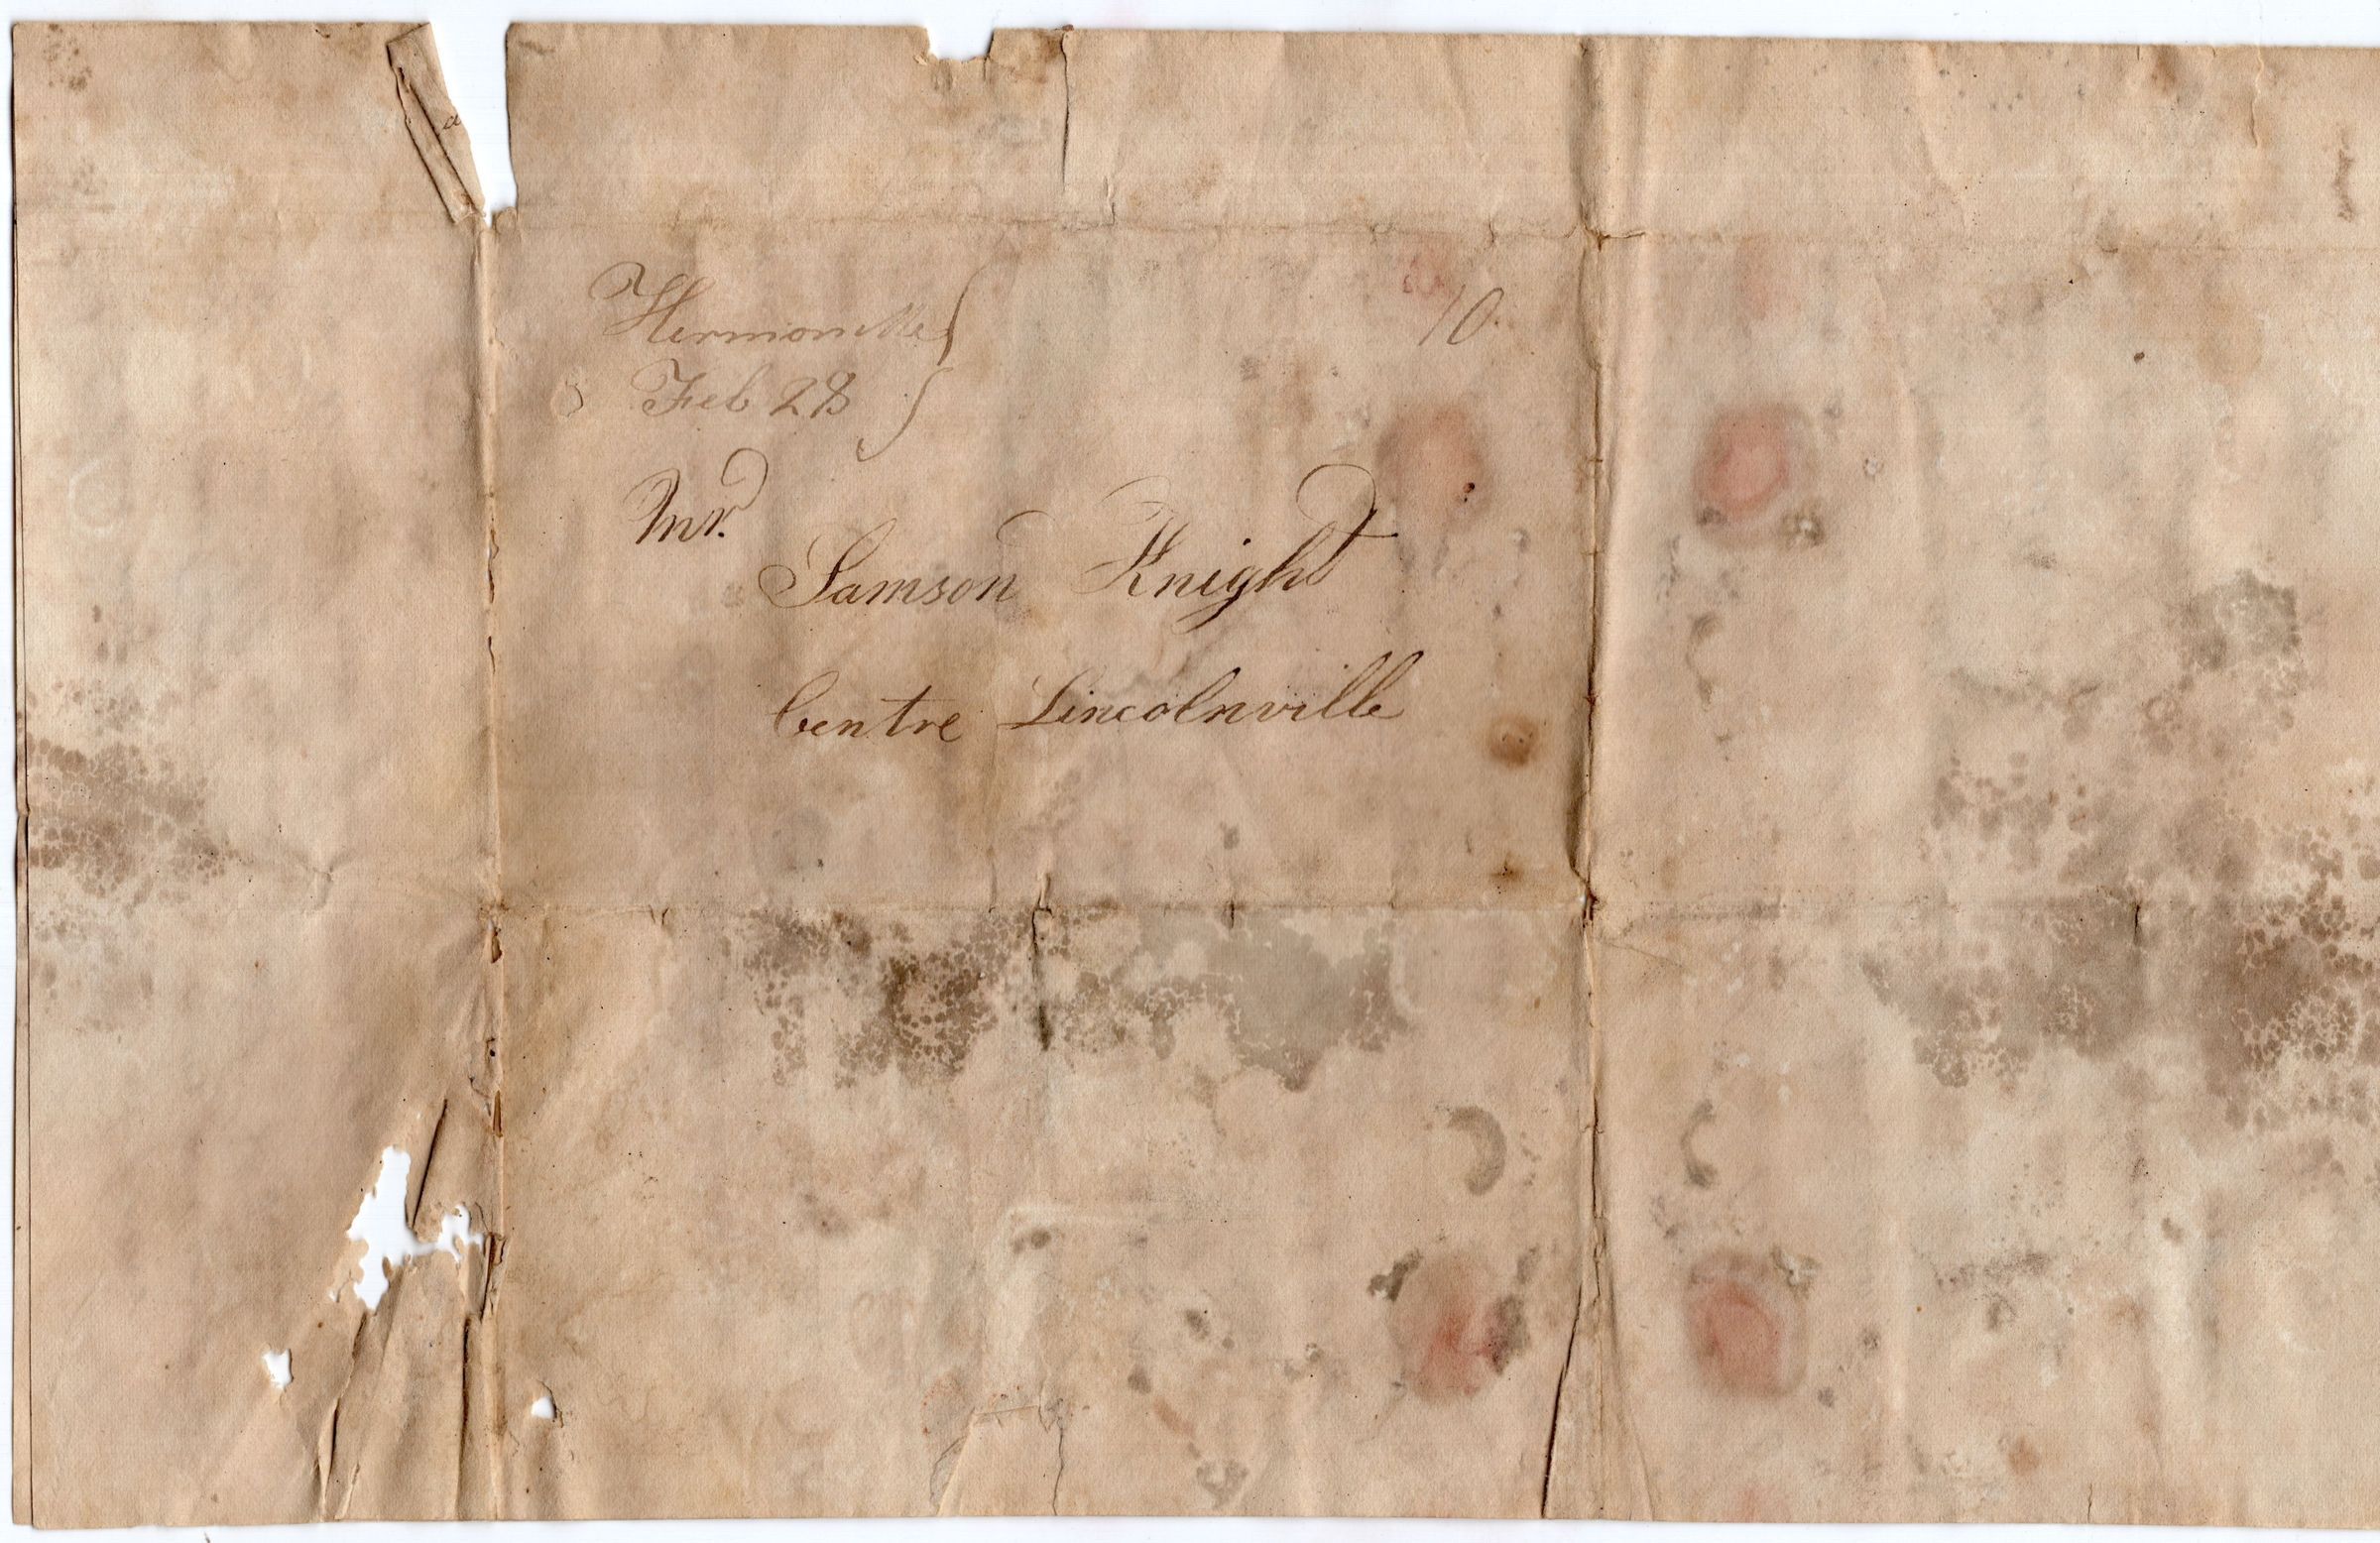 Hermon Me 10.
Feb 28
Mr.
Samson Knight
Centre Lincolnville